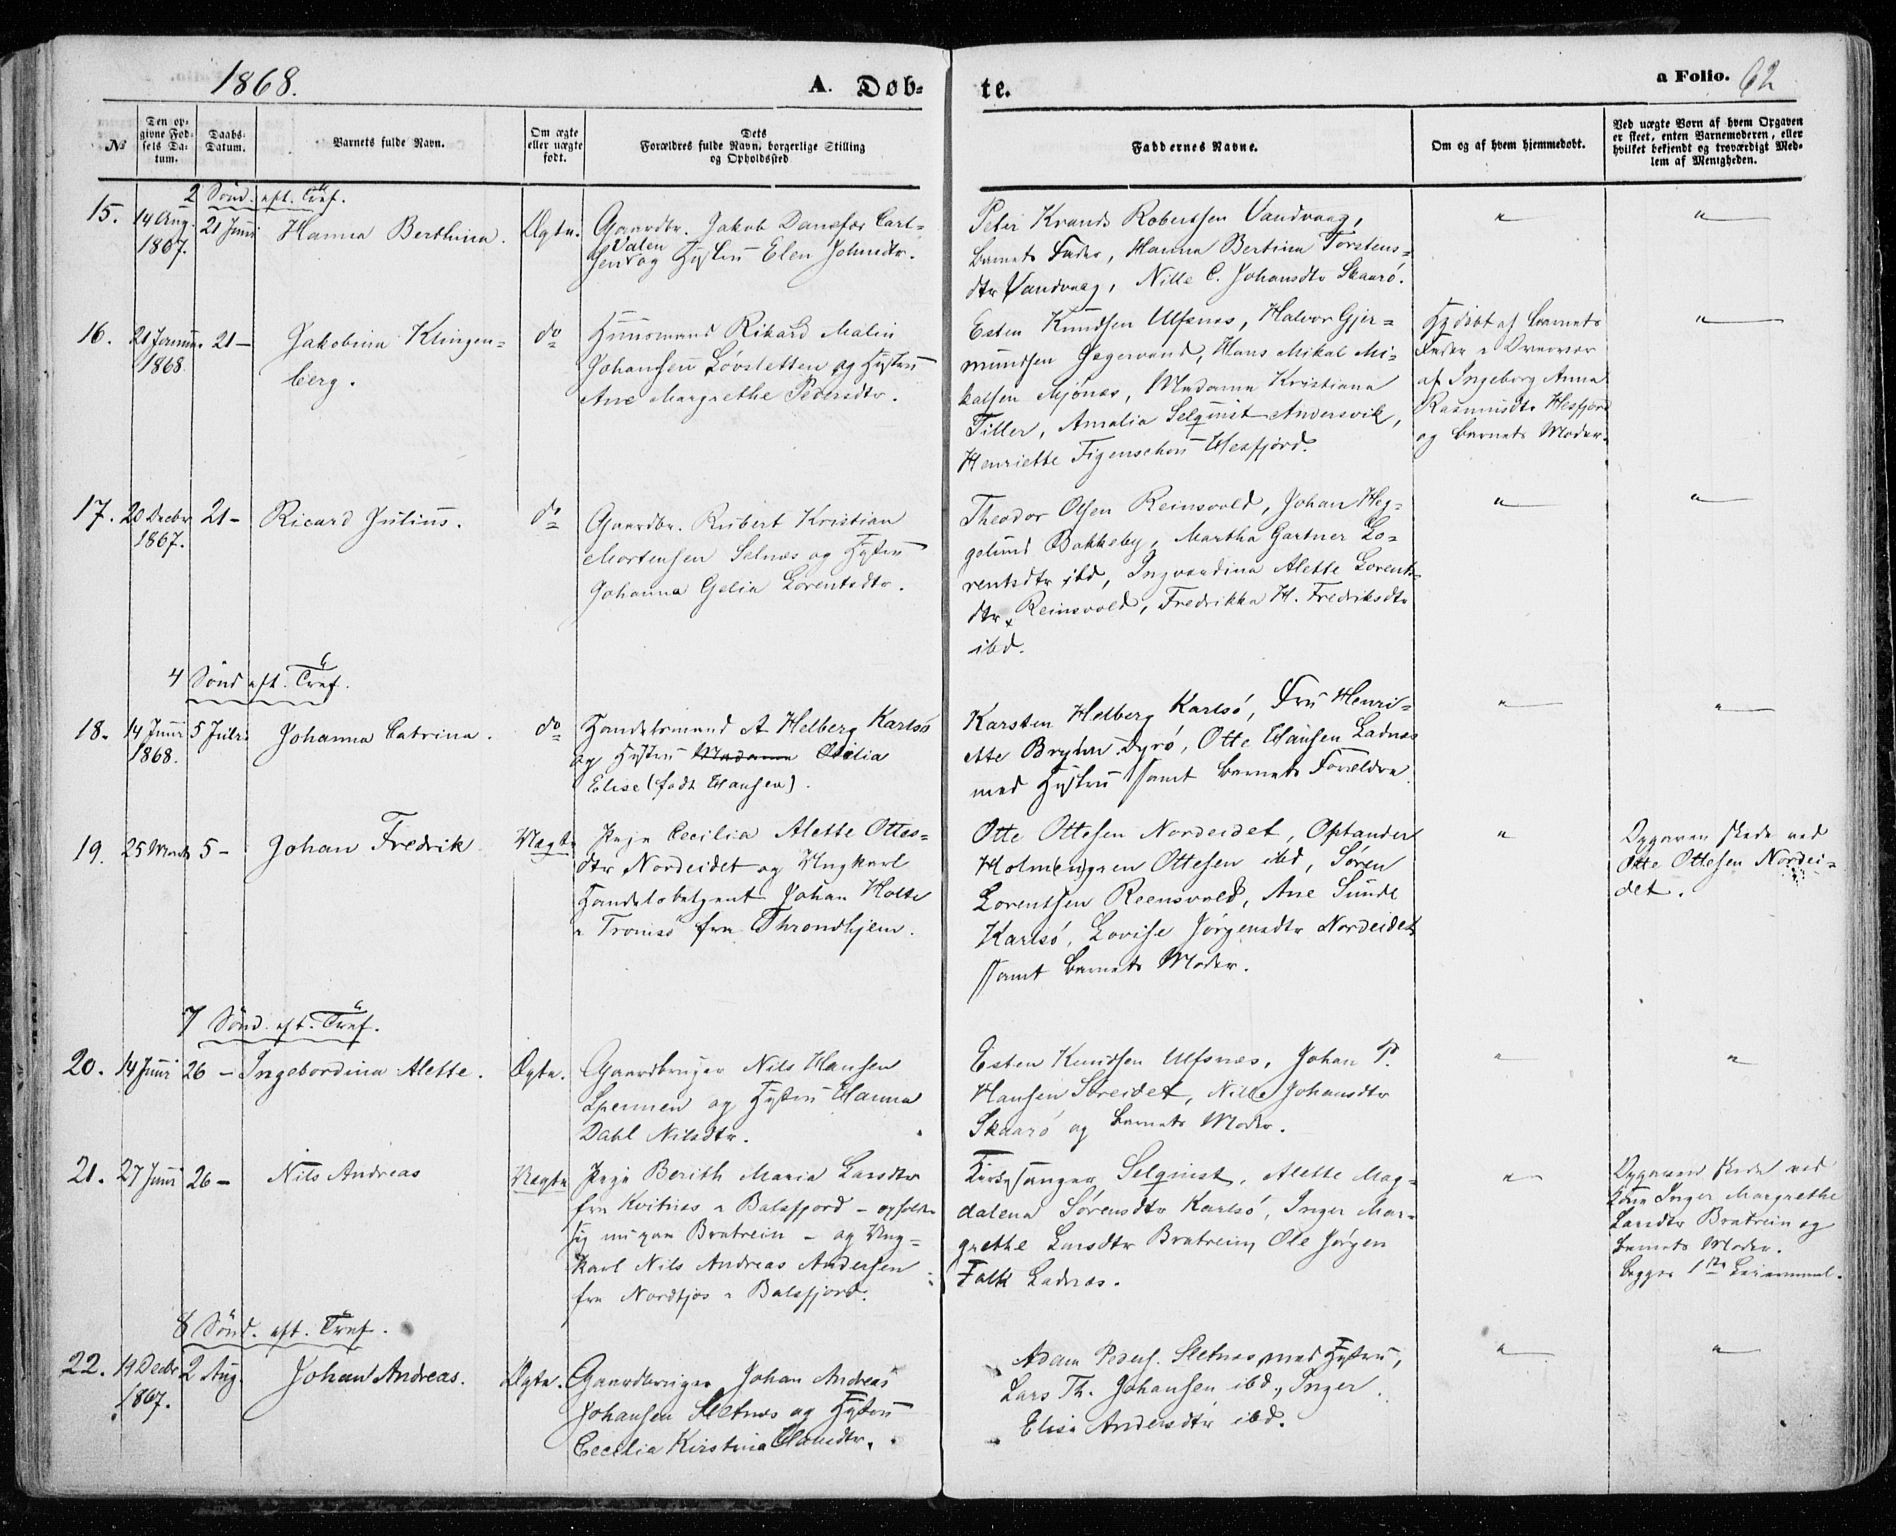 1868.
A. Døb-
te.
a Folio. 62
№
Den op-
givne Fød-
sels Da-
tum.
Daabs-
Datum.
Barnets fulde Navn.
Om ægte
eller uægte
født.
Dets
Forældres fulde Navn, borgerlige Stilling
og Opholdssted
Faddernes Navne.
Om og af hvem hjemmedøbt.
Ved uægte Børn af hvem Opgaven
er skeet, enten Barnemoderen, eller
hvilket bekjendt og troværdigt Med-
lem af Menigheden.
2 Sönd. eft. Tref.
15. 14 Aug. 1867. 21 Juni Hanna Berthina. Ægte.
Gaardbr. Jakob Danefær Carl-
sen Valen og Hustru Elen Johnsdtr.
Peter Krands Robertsen Vandvaag,
Barnets Fader, Hanna Bertina Torstens-
dtr Vandvaag, Nille C. Johansdtr Skaarö.
" "
16. 21 Januar 1868. 21 — Jakobina Klingen-
berg. do
Huusmand Rikard Malin
Johansen Lövsletten og Hustru
Ane Margrethe Pedersdtr.
Esten Knudsen Ulfsnes, Halvor Gjer-
mundsen Jægervand, Hans Mikal Mi-
kalsen Mjönes, Madama Kristiana
Tiller, Amalia Selquist Andersvik,
Henriette Figenschou Hesfjord.
Hjdöbt af Barnets
Fader
af Ingeborg Anna
Rasmusdtr Hesfjord
og Barnets Moder.
"
17. 20 Decbr 1867. 21 — Ricard Julius. do
Gaardbr. Rubert Kristian
Mortensen Selnæs og Hustru
Johanna Gelia Lorentsdtr.
Theodor Olsen Reinsvold, Johan Heg-
gelund Bakkeby, Martha Gartner Lo-
rentsdtr ibd, Ingvardina Alette Lorents-
dtr Reinsvold, Fredrikka H. Fredriksdtr
ibd.
" "
4 Sönd eft. Tref.
18. 14 Juni 1868. 5 Juli Johanna Catrina. do
Handelsmand A Helberg Karlsö
og Hustru Madama Otilia
Elise (födt Hansen).
Karsten Helberg Karlsö, Fru Henri-
ette Bryhn Dyrö, Otte Hansen Ladnæs
med Hustru samt Barnets Forældre
" "
19. 25 Marts 5 — Johan Fredrik Uægte
Pige Cecilia Alette Ottes-
dtr Nordeidet og Ungkarl
Handelsbetjent Johan Holte
i Tromsö fra Throndhjem.
Otte Ottesen Nordeidet, Optander
Holmengren Ottesen ibd, Sören
Lorentsen Reensvold, Ane Sunde
Karlsö, Lovise Jörgensdtr Nordeidet
samt Barnets Moder.
"
Opgaven skede ved
Otte Ottesen Nordei-
det.
7 Sönd. eft. Tref.
20. 14 Juni 26 — Ingebordina Alette. Ægte.
Gaardbruger Nils Hansen
Spennen og Hustru Hanna
Dahl Nilsdtr.
Esten Knudsen Ulfsnæs, Johan P.
Hansen Söreidet, Nille Johansdtr
Skaarö og Barnets Moder.
" "
21. 27 Juni 26 — Nils Andreas Uægte
Pige Berith Maria Larsdtr
fra Kvitnes i Balsfjord – opholder
sig nu paa Bratrein – og Ung-
karl Nils Andreas Andersen
fra Nordkjos i Balsfjord.
Kirkesanger Selquist, Alette Mag-
dalena Sörensdtr Karlsö, Inger Mar-
grethe Larsdtr Bratrein, Ole Jörgen
Falk Ladnæs.
"
Opgaven skede ved
Kone Inger Margrethe
Larsdtr Bratrein og
Barnets Moder.
begges 1ste Leiermaal.
8 Sönd. eft. Tref.
22. 19 Decbr 1867. 2 Aug. Johan Andreas. Ægte.
Gaardbruger Johan Andreas
Johansen Sletnæs og Hustru
Cecilia Kirstina Hansdtr.
Adam Peders. Sletnæs med Hustru,
Lars Th. Johansen ibd., Inger
Elisa Andersdtr ibd.
" "